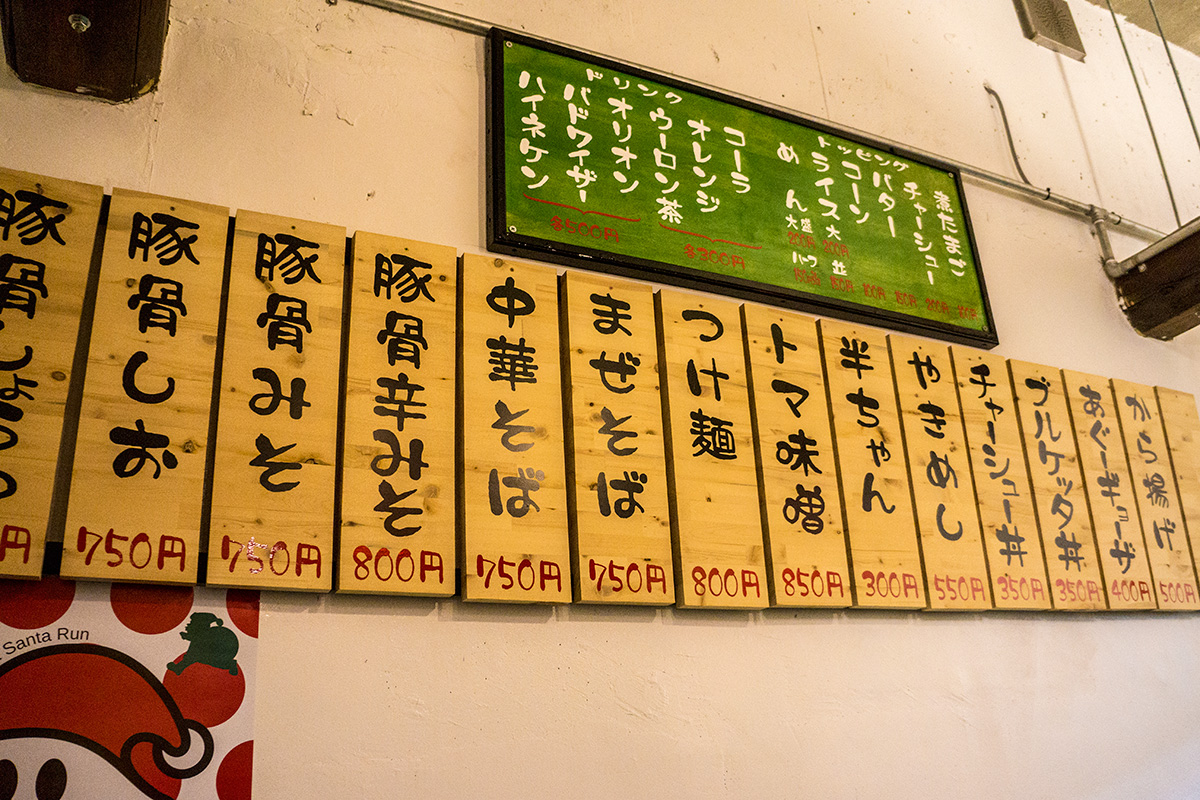 ドリンク
ハイネケン
バドワイザー
オリオン
$500円
ウーロン茶
オレンジ
コーラ
$300円
トッピング
めん
大盛
200円
ハーフ
ライス
大
200円
並
150円
コーン
100円
バター
150円
チャーシュー
200円
煮たまご
豚骨しょうゆ
円
豚骨しお
750円
豚骨みそ
750円
豚骨辛みそ
800円
中華そば
750円
まぜそば
750円
つけ麺
800円
トマ味噌
850円
半ちゃん
300円
やきめし
550円
チャーシュー丼
350円
ブルケッタ丼
350円
あぐーギョーザ
400円
から揚げ
500円
Santa Run